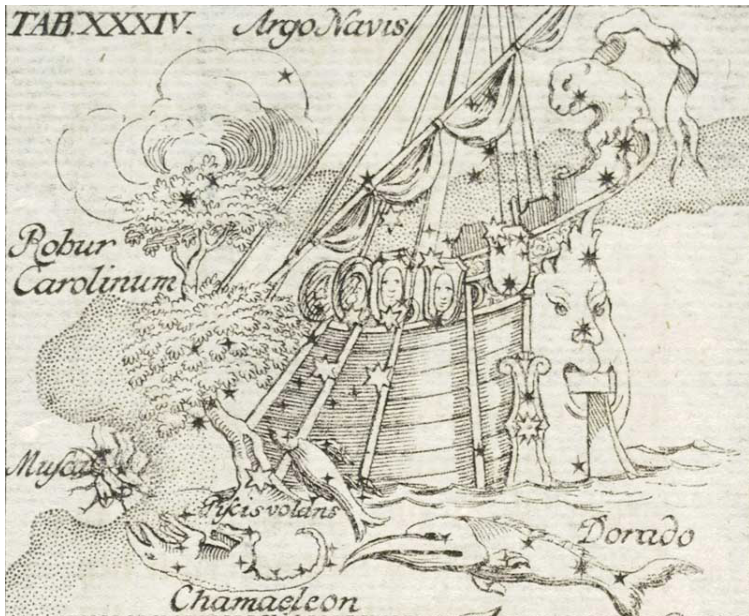 TAB.XXXIV. Argo Navis
Robur
Carolinum
Musca
Piscis volans
Dorado
Chamaeleon